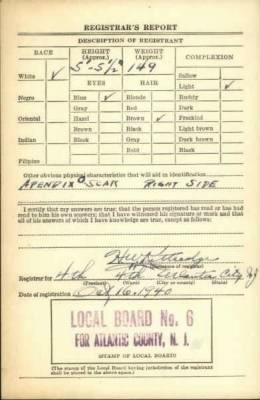 REGISTRAR'S REPORT
DESCRIPTION OF REGISTRANT
RACE HEIGHT (Approx.) WEIGHT (Approx.) COMPLEXION
5'-5½" 149
White ✓ Sallow
EYES HAIR Light ✓
Negro Blue ✓ Blonde Ruddy
Gray Red Dark
Oriental Hazel Brown ✓ Freckled
Brown Black Light brown
Indian Black Gray Dark brown
Bald Black
Filipino
Other obvious physical characteristics that will aid in identification
APENDIX SCAR RIGHT SIDE
I certify that my answers are true; that the person registered has read or has had
read to him his own answers; that I have witnessed his signature or mark and that
all of his answers of which I have knowledge are true, except as follows:
(Signature of registrar)
Registrar for 4th 4th Atlantic City NJ
(Precinct) (Ward) (City or county) (State)
Date of registration Oct 16 1940
LOCAL BOARD No. 6
FOR ATLANTIC COUNTY, N. J.
(STAMP OF LOCAL BOARD)
(The stamp of the Local Board having jurisdiction of the registrant
shall be placed in the above space.)